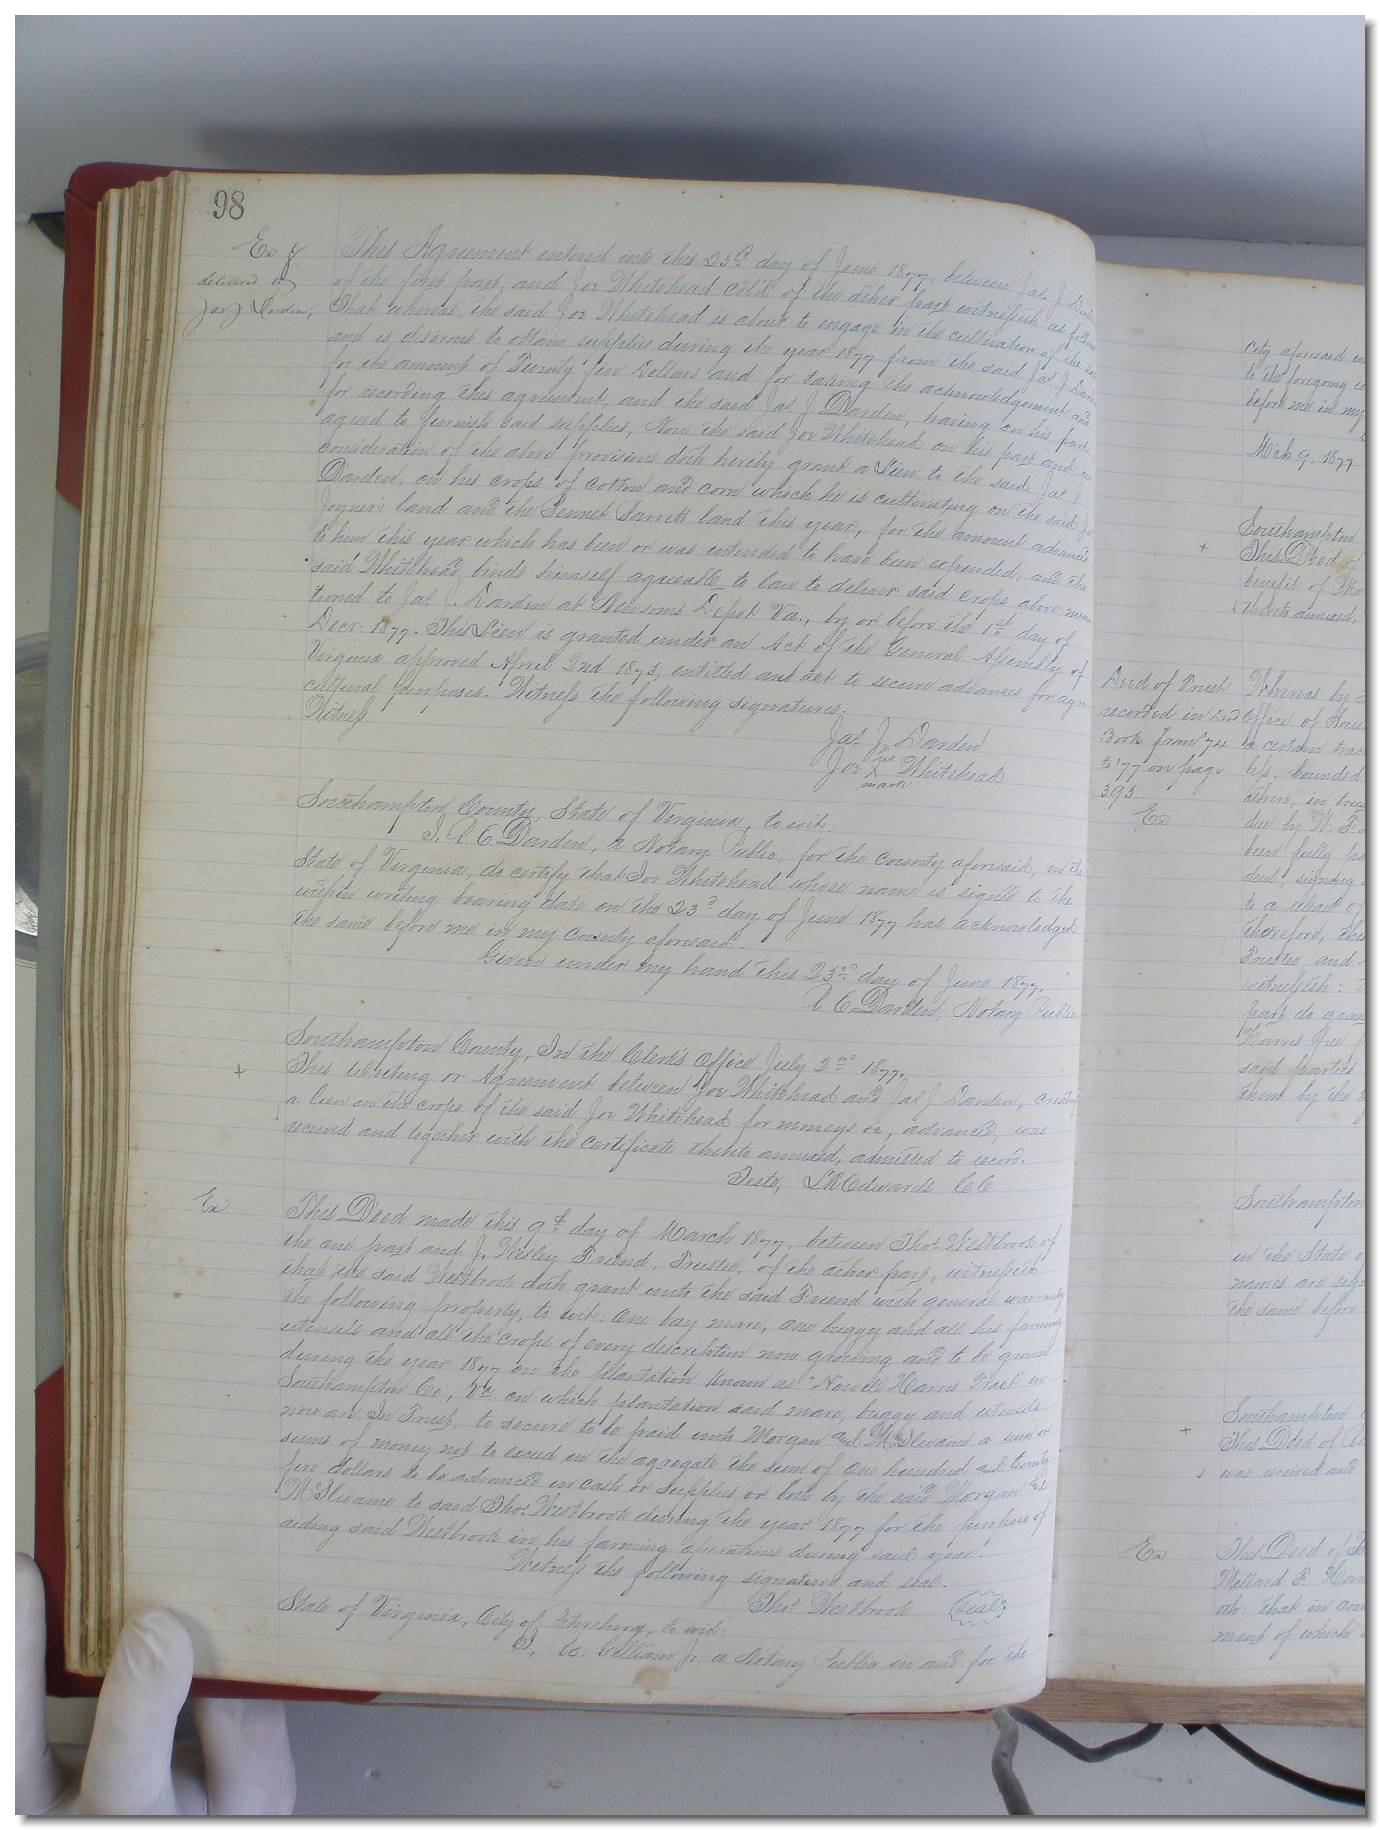 98
Ex &
delivered to
Jas J Darden,
This Agreement entered into this 23rd day of June 1877, between Jas. J. Darden
of the first part, and Joe Whitehead cold. of the other part witnesseth as follows
That whereas the said Joe Whitehead is about to engage in the cultivation of the soil
and is desirous to obtain supplies during the year 1877 from the said Jas J. Darden
for the amount of Twenty five Dollars and for taking the acknowledgement and
for recording this agreement, and the said Jas J. Darden, having on his part
agreed to furnish said supplies, Now the said Joe Whitehead on his part and in
consideration of the above provisions doth hereby grant a Lien to the said Jas J.
Darden, on his crops of cotton and corn which he is cultivating on the said Jas
Joyner's land and the Bennet Barrett land this year, for the amount advanced
to him this year which has been or was intended to have been expended, and the
said Whitehead binds himself agreeable to law to deliver said crops above men-
tioned to Jas. J. Darden at Newsoms Depot Va., by or before the 1st day of
Decr. 1877. This Lien is granted under an Act of the General Assembly of
Virginia approved April 2nd 1873, entitled and act to secure advances for agri-
cultural purposes. Witness the following signatures.
Witness
Jas. J. Darden
his
Joe X Whitehead
mark
Southampton County, State of Virginia, to wit:
I, A. E. Darden, a Notary Public, for the county aforesaid, in the
State of Virginia, do certify that Joe Whitehead whose name is signed to the
within writing bearing date on the 23d day of June 1877 has acknowledged
the same before me in my county aforesaid.
Given under my hand this 23rd day of June 1877.
A. E. Darden, Notary Public
Southampton County, In the Clerk's Office July 2nd 1877.
This writing or Agreement between Joe Whitehead and Jas J Darden, creating
a lien on the crops of the said Joe Whitehead for moneys &c, advanced, was
received and together with the certificate thereto annexed, admitted to record.
Teste, L R Edwards C C
Ex
This Deed made this 9th day of March 1877, between Thos Westbrook of
the one part and J. Wesley Friend, Trustee, of the other part, witnesseth
that the said Westbrook doth grant unto the said Friend with general warranty
the following property, to wit: One bay mare, one buggy and all his farming
utensils and all the crops of every description now growing and to be grown
during the year 1877 on the plantation known as "Nowell Harris Tract" in
Southampton Co, Va. on which plantation said mare, buggy and utensils
now are. In Trust, to secure to be paid unto Morgan and McIlwaine a sum or
sums of money not to exceed in the aggregate the sum of one hundred and twenty
five dollars to be advanced in cash or supplies or both by the said Morgan and
McIlwaine to said Thos. Westbrook during the year 1877 for the purpose of
aiding said Westbrook in his farming operations during said year.
Witness the following signature and seal.
Thos Westbrook {seal}
State of Virginia, City of Petersburg, to wit:
I, Gilliam Jr. a Notary Public in and for the
city aforesaid
to the foregoing
before me in my
Mch 9. 1877
Southampton
This Deed of
benefit of
thereto annexed,
Deed of Trust
recorded in 2nd
Book from '74
to '77 on page
393.
Ex
Whereas by
Office of
a certain trac
bounded
others, in
due by W. F.
been fully
deed, signing
to a
therefore, this
Trustee and
witnesseth:
part do gran
Harris free
said parties
them by the
Southampton
in the State o
names are sign
the same before
Southampton
This Deed of
was received and
Ex
This Deed of
Millard F.
that in con
ment of which